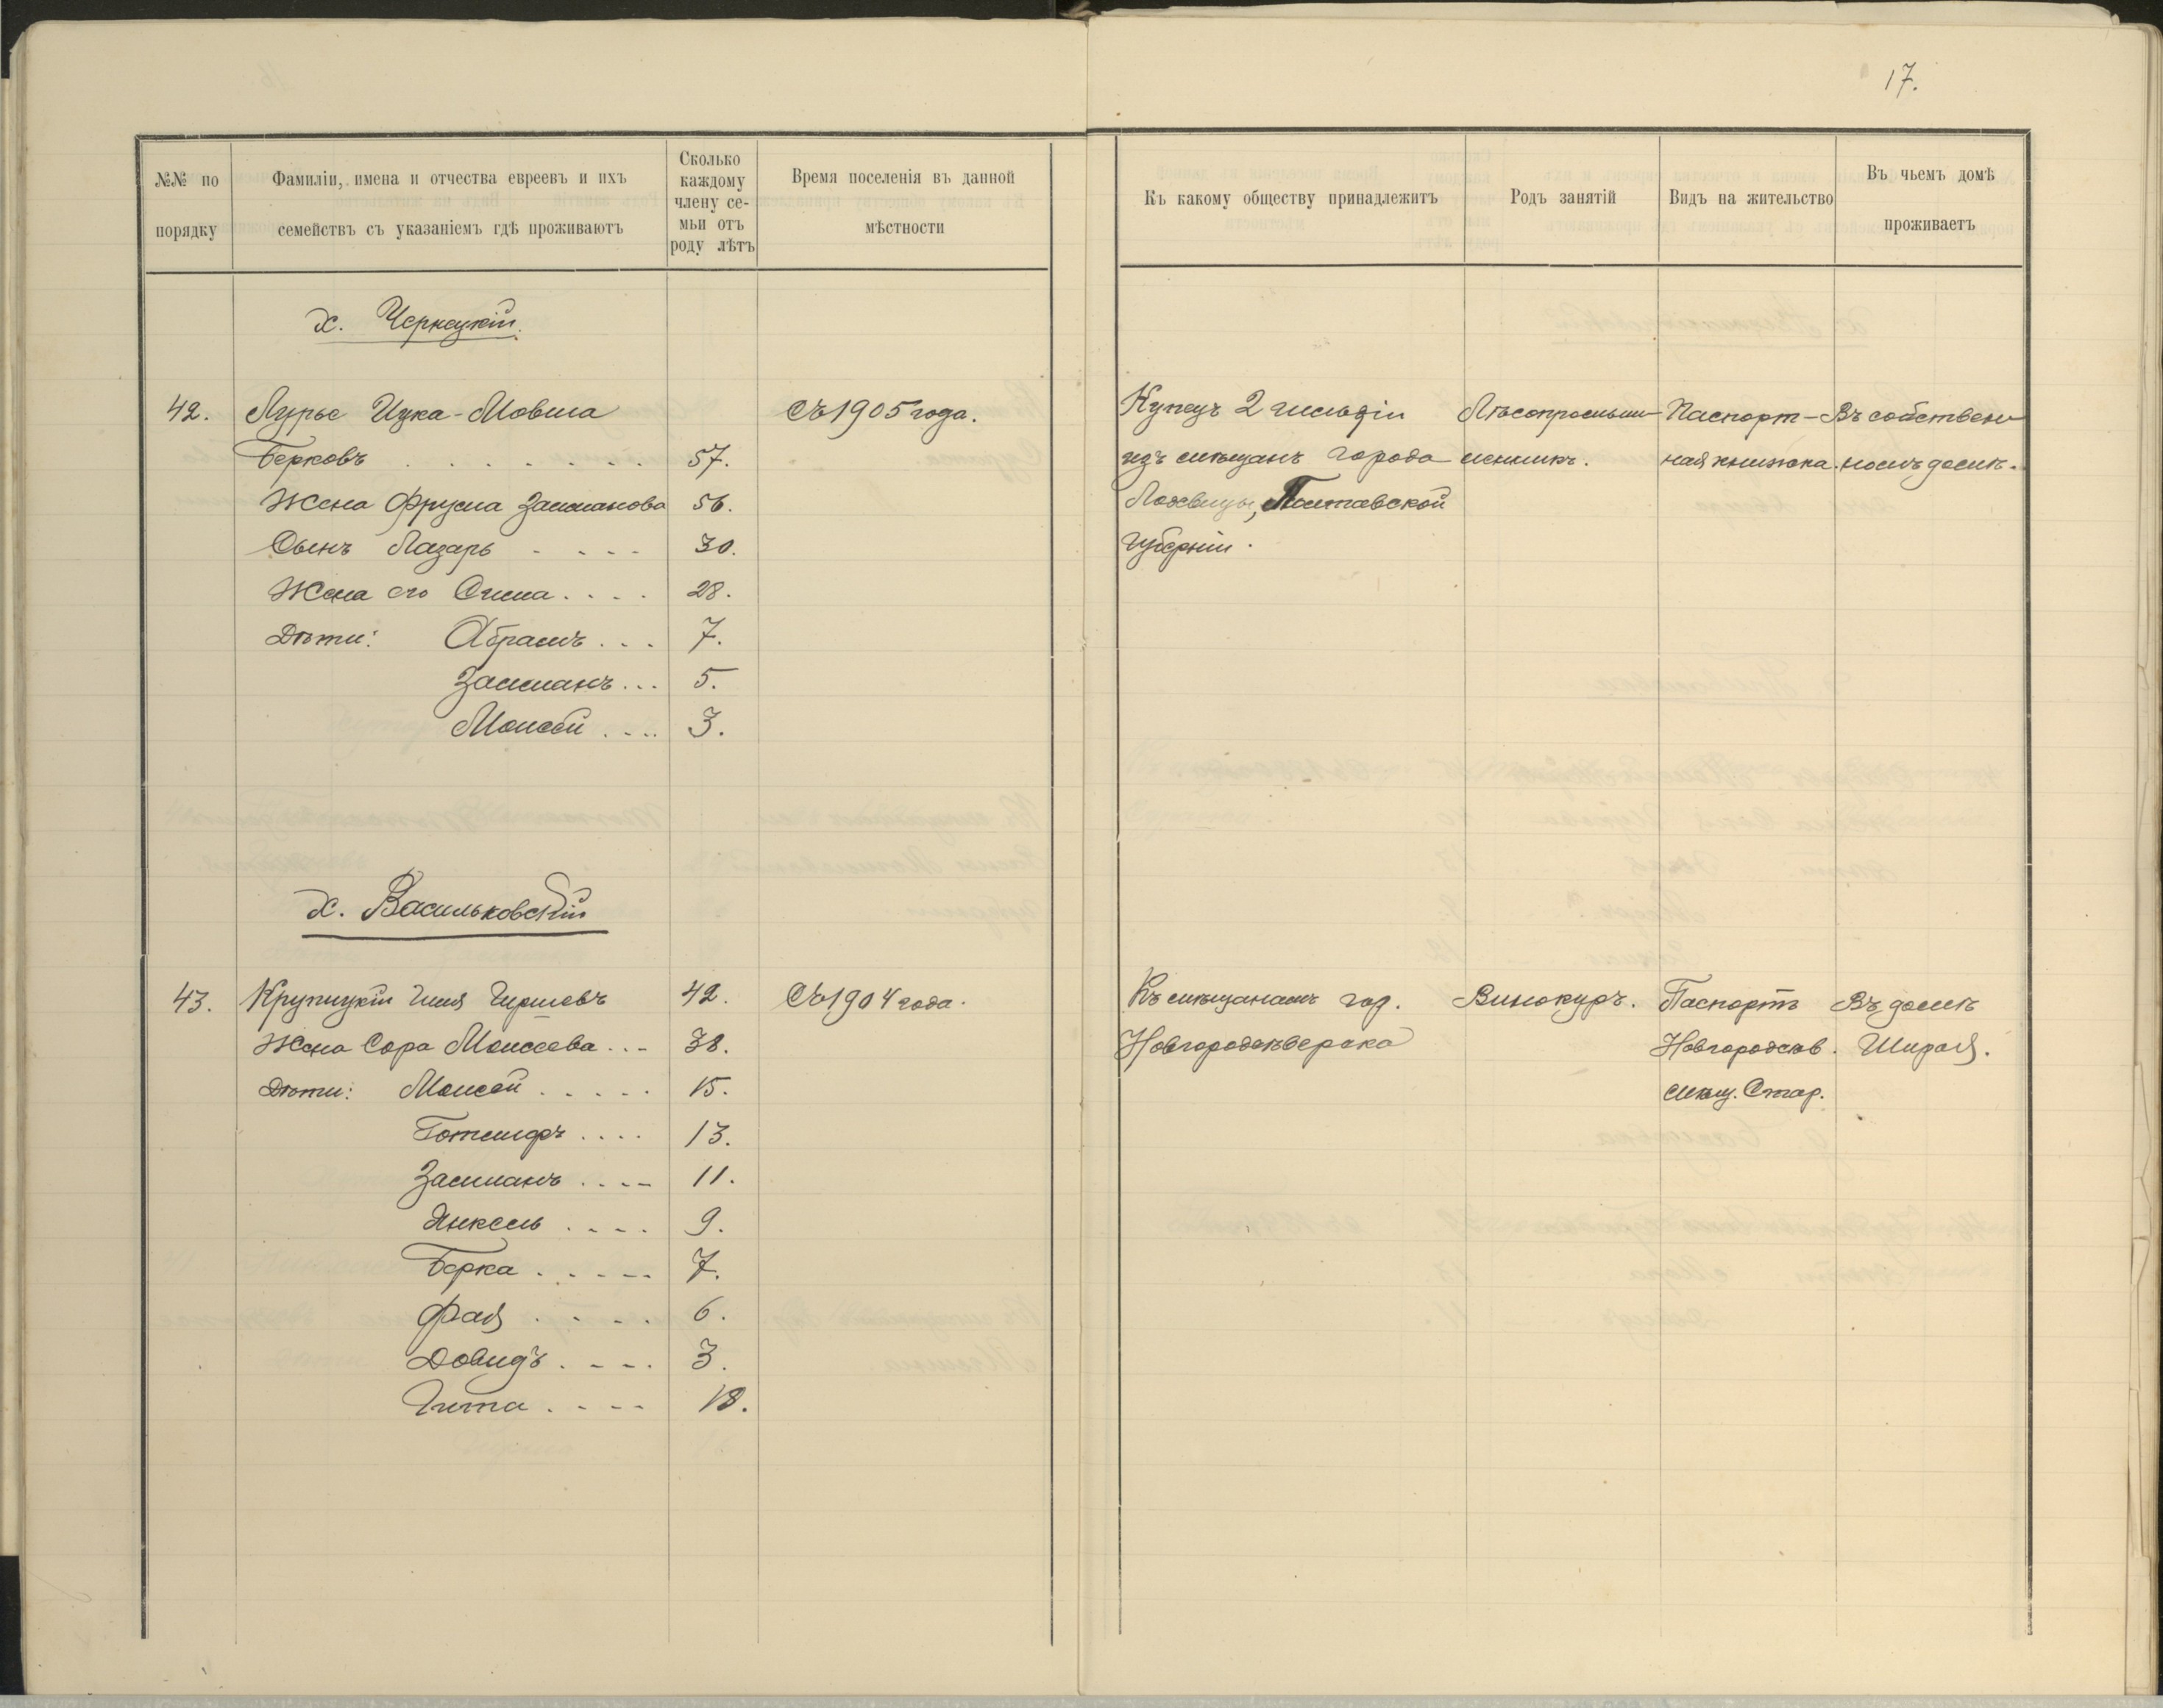 17.
№№ по порядку
Фамиліи, имена и отчества евреевъ и ихъ
семействъ съ указаніемъ гдѣ проживаютъ
Сколько
каждому
члену се-
мьи отъ
роду лѣтъ
Время поселенія въ данной
мѣстности
Къ какому обществу принадлежитъ
Родъ занятій
Видъ на жительство
Въ чьемъ домѣ
проживаетъ
х. Чернецкій.
42. Лурье Ицка-Мовша Съ 1905 года. Купецъ 2 гильдіи Лѣсопромыш- Паспорт- Въ собствен-
Берковъ 57. изъ мѣщанъ города ленникъ. ная книжка. номъ домѣ.
Жена Фрума Залманова 56. Лохвицы, Полтавской
Сынъ Лазарь 30. губерніи.
Жена его Сима 28.
Дѣти: Абрамъ 7.
Залманъ 5.
Моисей 3.
х. Васильковскій
43. Крупицкій Гиля Гиршовъ 42. Съ 1904 года. Къ мѣщанамъ гор. Винокуръ. Паспортъ Въ домѣ
Жена Сора Моисеева 38. Новгородсѣверска Новгородсѣв. Ширая.
Дѣти: Моисей 15. мѣщ. Стар.
13.
Залманъ 11.
Янкель 9.
Берка 7.
Фая 6.
Довидъ 3.
Гита 18.